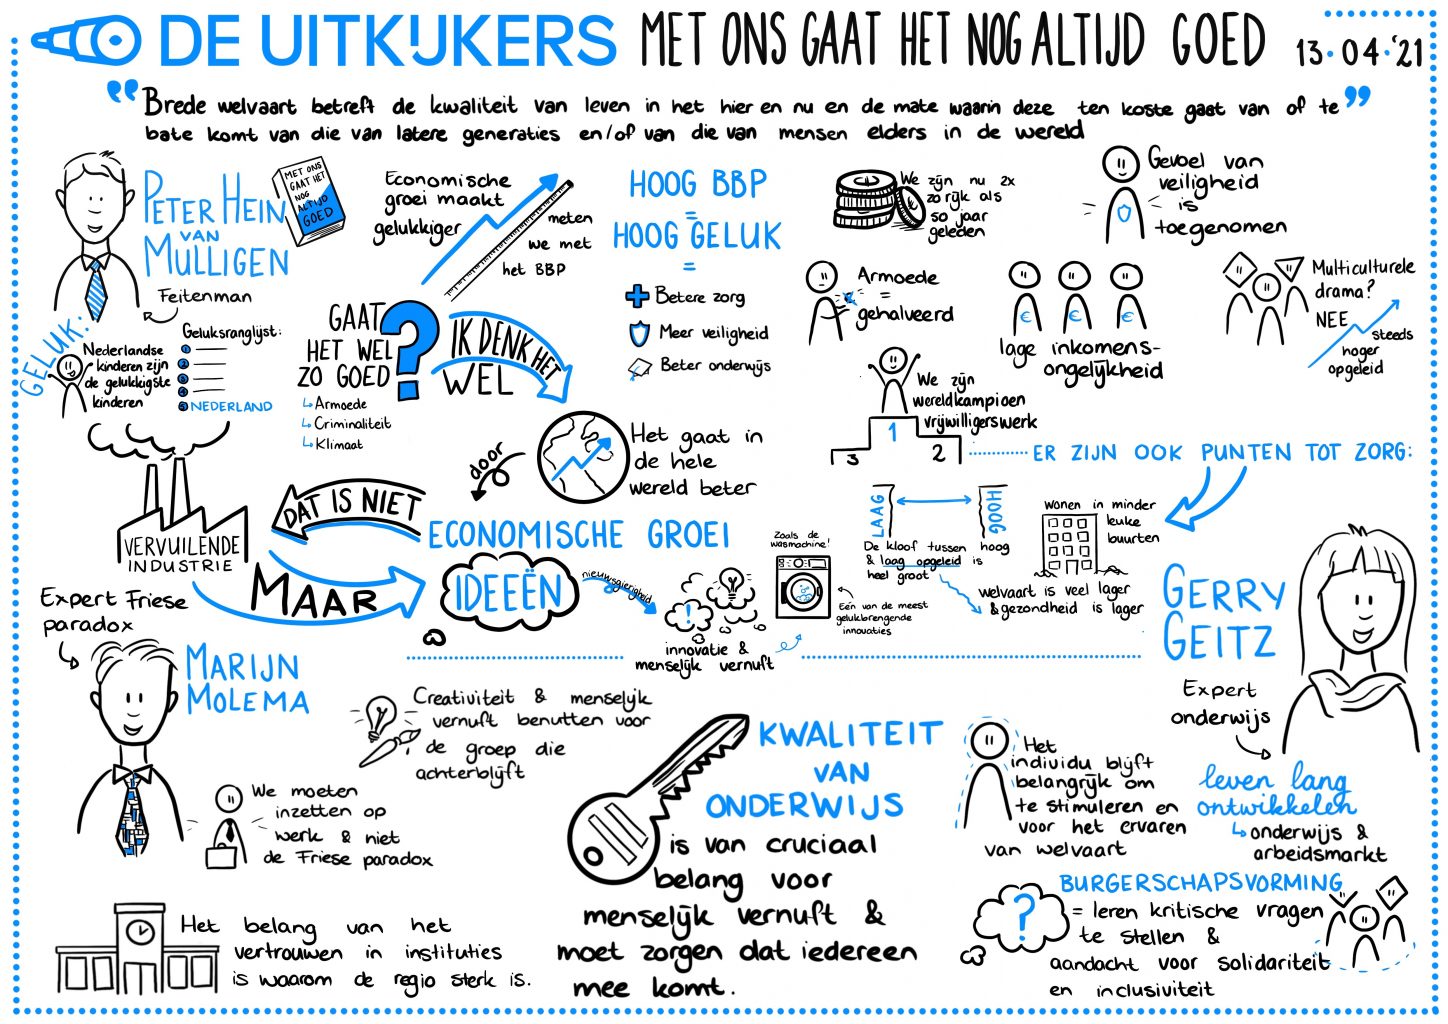 DE UITKIJKERS
MET ONS GAAT HET NOG ALTIJD GOED
13·04·'21
"Brede welvaart betreft de kwaliteit van leven in het hier en nu en de mate waarin deze ten koste gaat van of te"
bate komt van die van latere generaties en/of van die van mensen elders in de wereld
PETER HEIN
VAN
MULLIGEN
MET ONS
GAAT HET
NOG
ALTIJD
GOED
Feitenman
GELUK:
Nederlandse
kinderen zijn
de gelukkigste
kinderen
Geluksranglijst:
1
2
3
4
5 NEDERLAND
Economische
groei maakt
gelukkiger
meten
we met
het BBP
HOOG BBP
=
HOOG GELUK
=
Betere zorg
Meer veiligheid
Beter onderwijs
GAAT
HET WEL
ZO GOED
?
Armoede
Criminaliteit
Klimaat
IK DENK HET
WEL
Het gaat in
de hele
wereld beter
door
ECONOMISCHE GROEI
DAT IS NIET
VERVUILENDE
INDUSTRIE
MAAR
IDEEËN
nieuwsgierigheid
!
innovatie &
menselijk vernuft
Zoals de
wasmachine!
Eén van de meest
gelukbrengende
innovaties
We zijn nu 2x
zo rijk als
50 jaar
geleden
Gevoel van
veiligheid
is
toegenomen
Armoede
=
gehalveerd
€ € €
lage inkomens-
ongelijkheid
Multiculturele
drama?
NEE
steeds
hoger
opgeleid
We zijn
wereldkampioen
vrijwilligerswerk
1
3 2
ER ZIJN OOK PUNTEN TOT ZORG:
LAAG
HOOG
De kloof tussen hoog
& laag opgeleid is
heel groot
Wonen in minder
leuke
buurten
welvaart is veel lager
& gezondheid is lager
GERRY
GEITZ
Expert
onderwijs
leven lang
ontwikkelen
onderwijs &
arbeidsmarkt
Expert Friese
paradox
MARIJN
MOLEMA
Creativiteit & menselijk
vernuft benutten voor
de groep die
achterblijft
We moeten
inzetten op
werk & niet
de Friese paradox
Het belang van het
vertrouwen in instituties
is waarom de regio sterk is.
KWALITEIT
VAN
ONDERWIJS
is van cruciaal
belang voor
menselijk vernuft &
moet zorgen dat iedereen
mee komt.
Het
individu blijft
belangrijk om
te stimuleren en
voor het ervaren
van welvaart
?
BURGERSCHAPSVORMING
= leren kritische vragen
te stellen &
aandacht voor solidariteit
en inclusiviteit